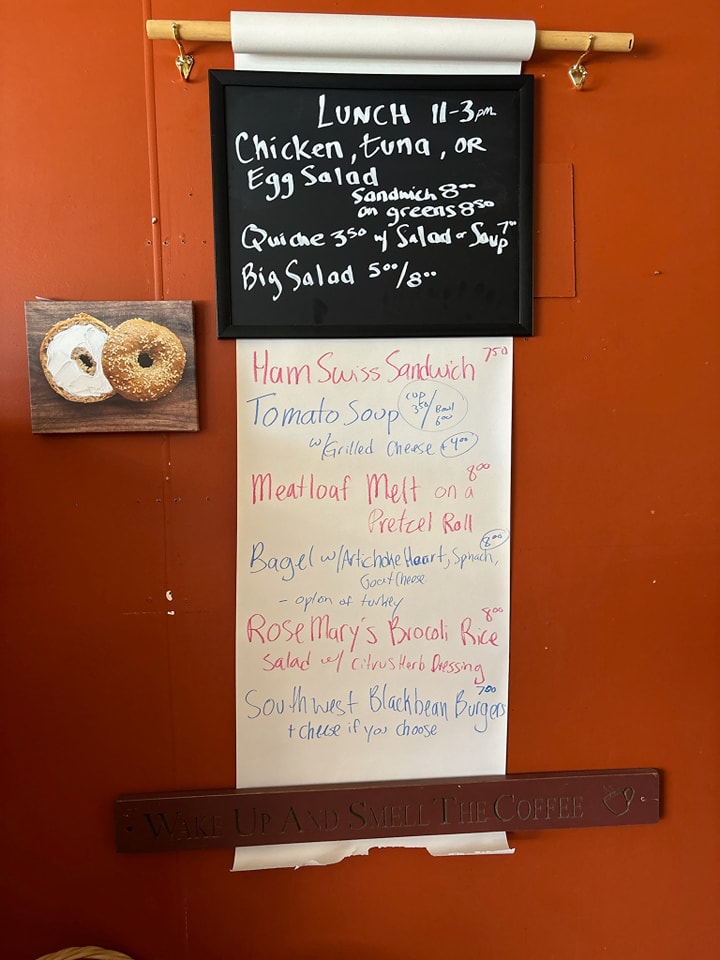 LUNCH 11-3pm
Chicken, tuna, OR
Egg Salad
Sandwich 8.00
on greens 8.50
Quiche 3.50 w/ Salad or Soup 7.00
Big Salad 5.00/8.00
Ham Swiss Sandwich 7.50
Tomato Soup cup 3.50/Bowl 6.00
w/Grilled Cheese +4.00
Meatloaf Melt on a 8.00
Pretzel Roll
Bagel w/Artichoke Heart, Spinach, 8.00
Goat Cheese
- option of turkey
RoseMary's Brocoli Rice 8.00
Salad w/ Citrus Herb Dressing
Southwest Blackbean Burgers 7.00
+ cheese if you choose
WAKE UP AND SMELL THE COFFEE